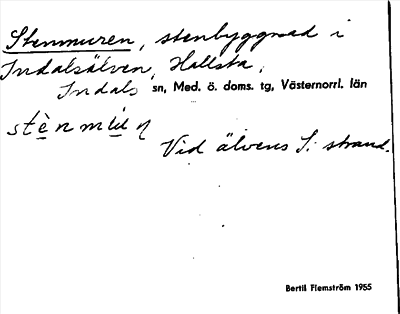 Stenmuren, stenbyggnad i
Indalsälven, Hallsta,
Indals sn, Med. ö. doms. tg, Västernorrl. län
Vid älvens S. strand.
Bertil Flemström 1955